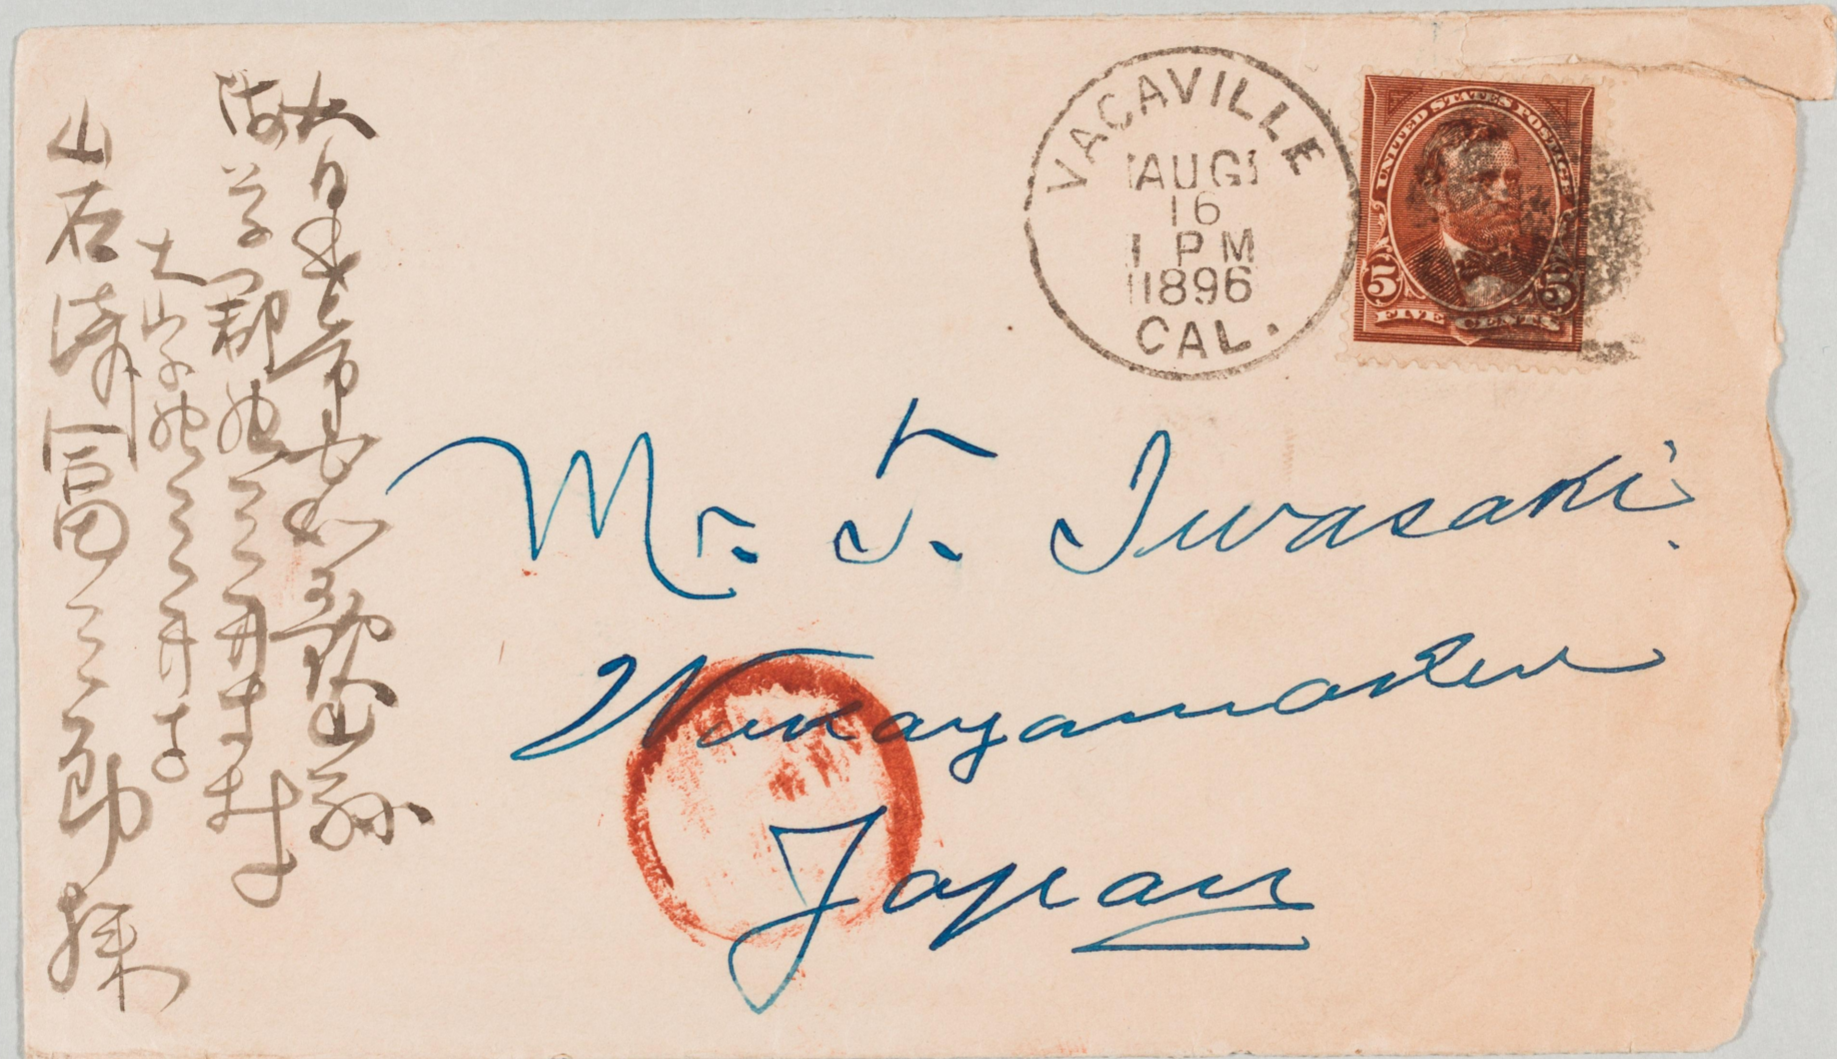 VACAVILLE
AUG
16
1 PM
1896
CAL.
UNITED STATES POSTAGE
5 5
FIVE CENTS
Mr. T. Iwasaki
Wakayamaken
Japan
大日本帝国和歌山縣
海草郡 三井寺村
大字 三井寺
岩清富三郎